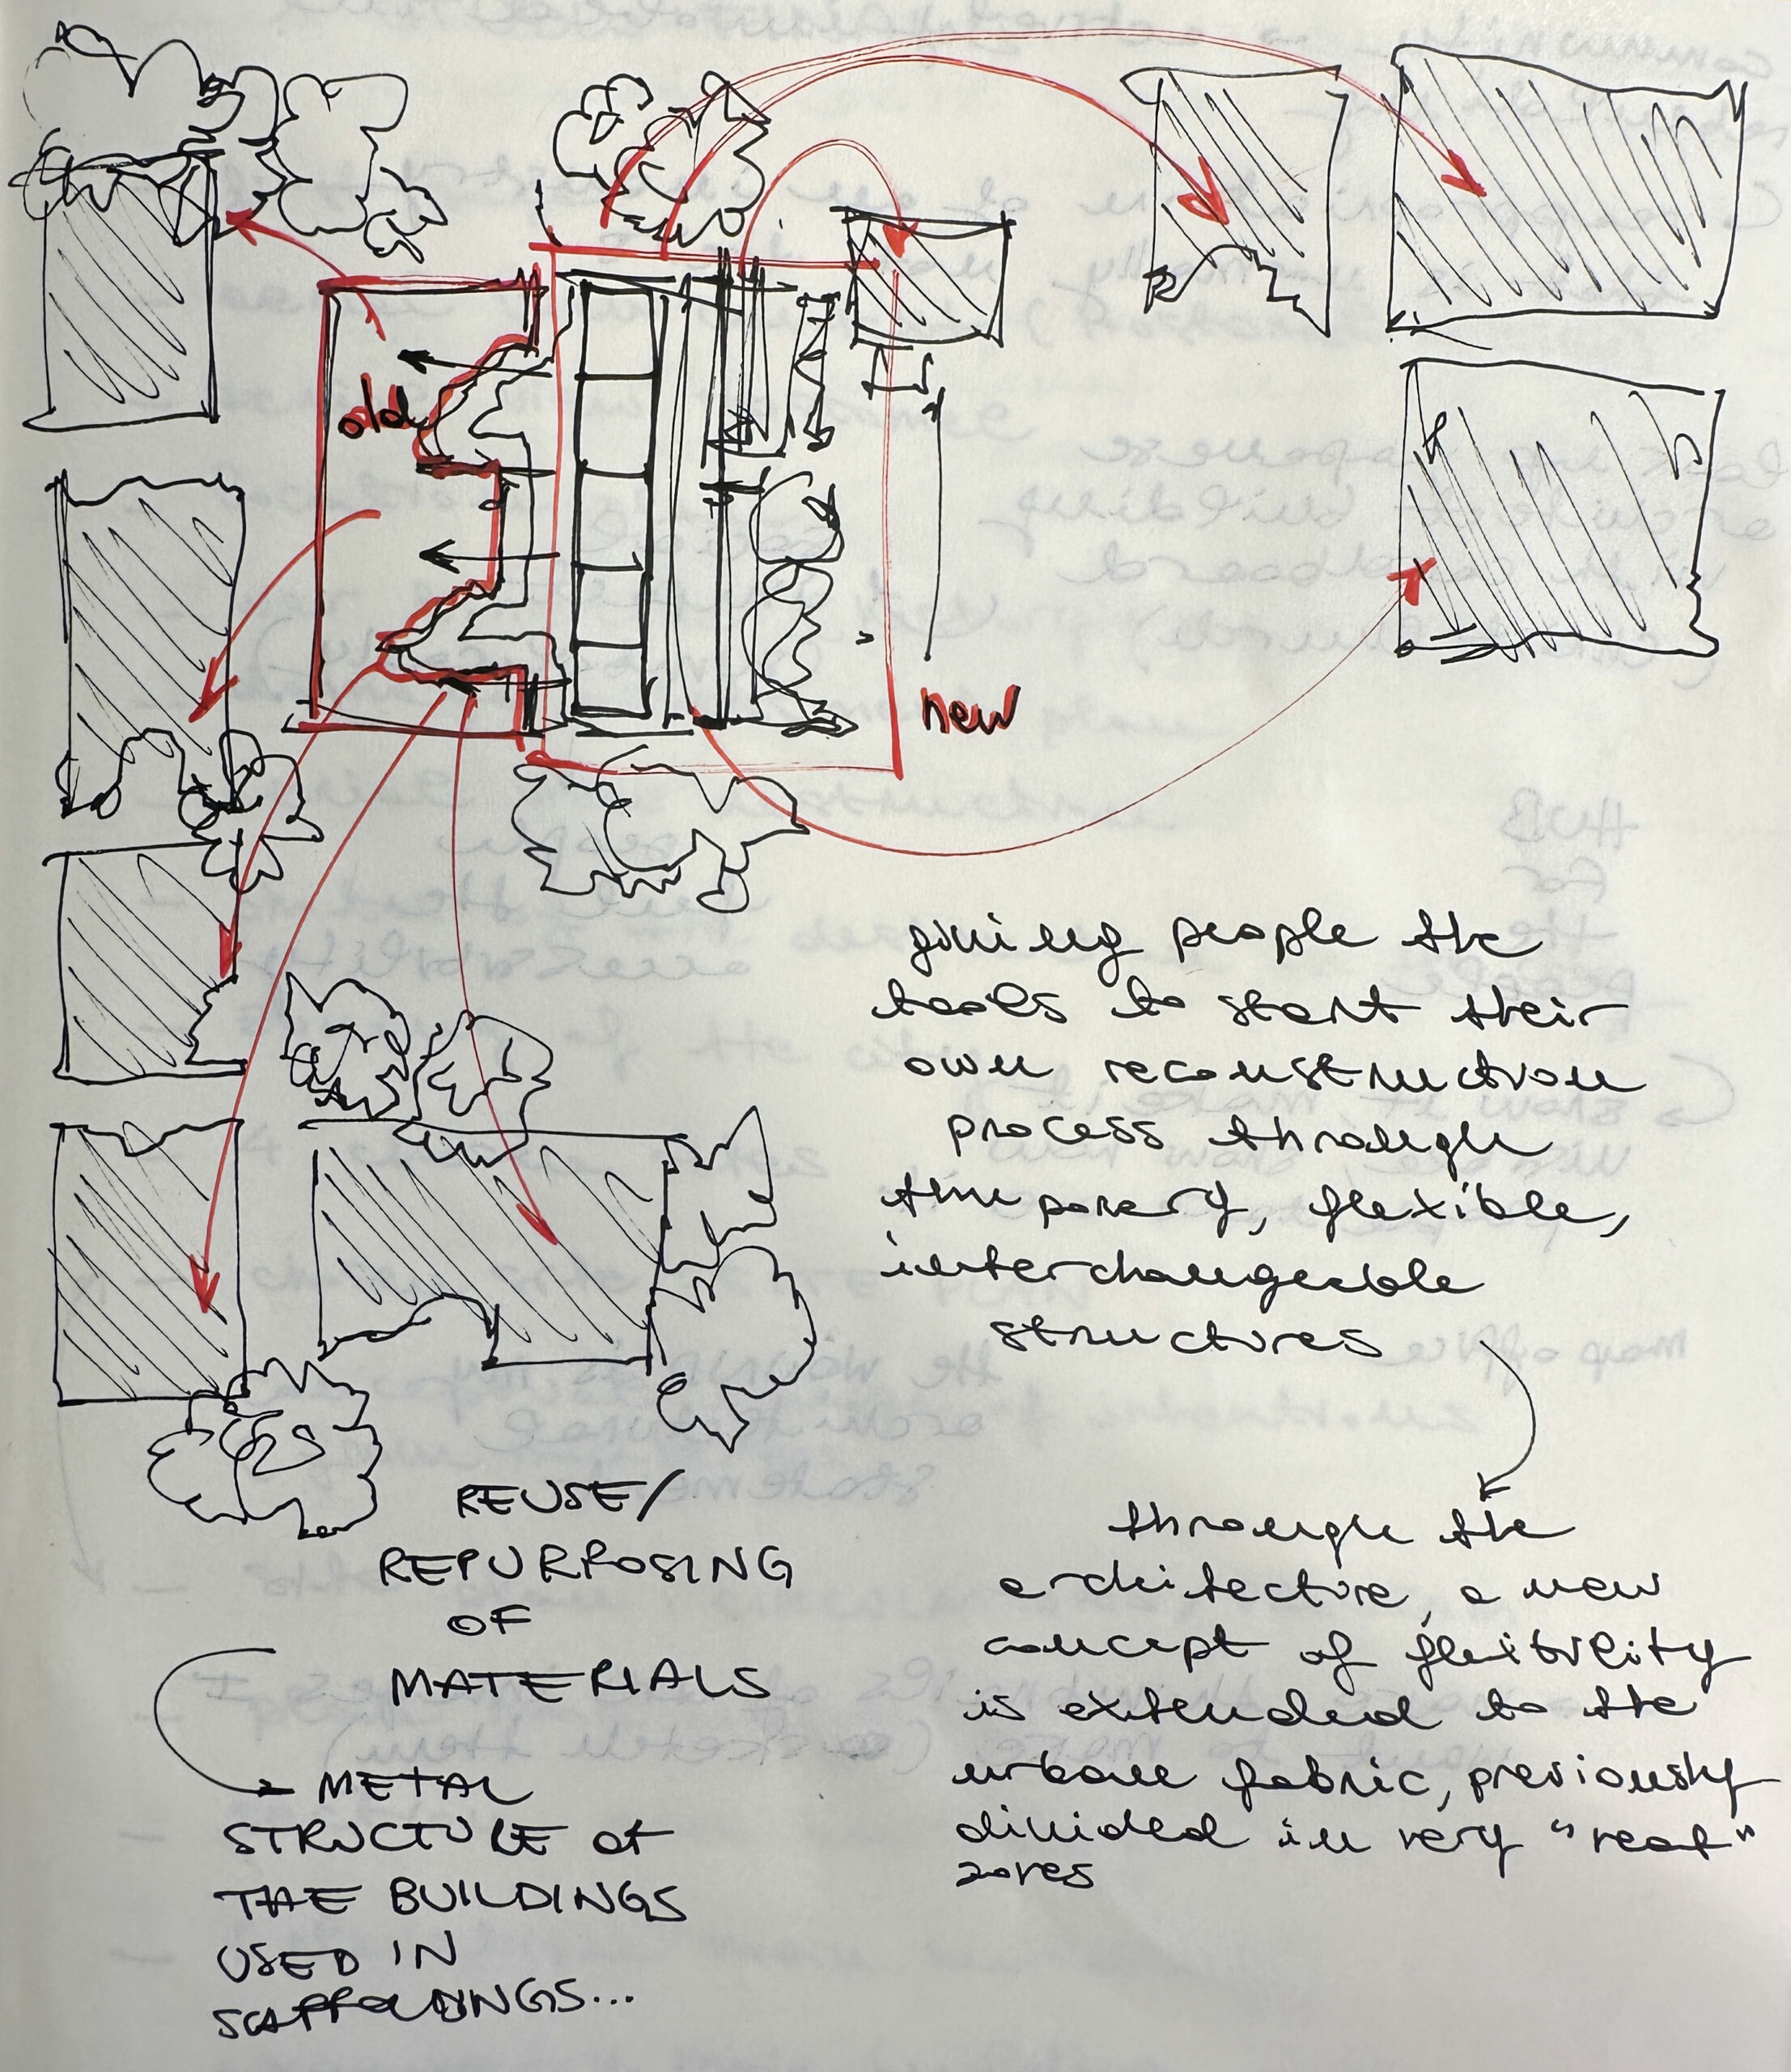 old
new
giving people the
tools to start their
own reconstruction
process through
temporary, flexible,
interchangeable
structures
through the
architecture, a new
concept of flexibility
is extended to the
urban fabric, previously
divided in very "neat"
zones
REUSE/
REPURPOSING
OF
MATERIALS
METAL
STRUCTURE OF
THE BUILDINGS
USED IN
SCAFFOLDINGS...